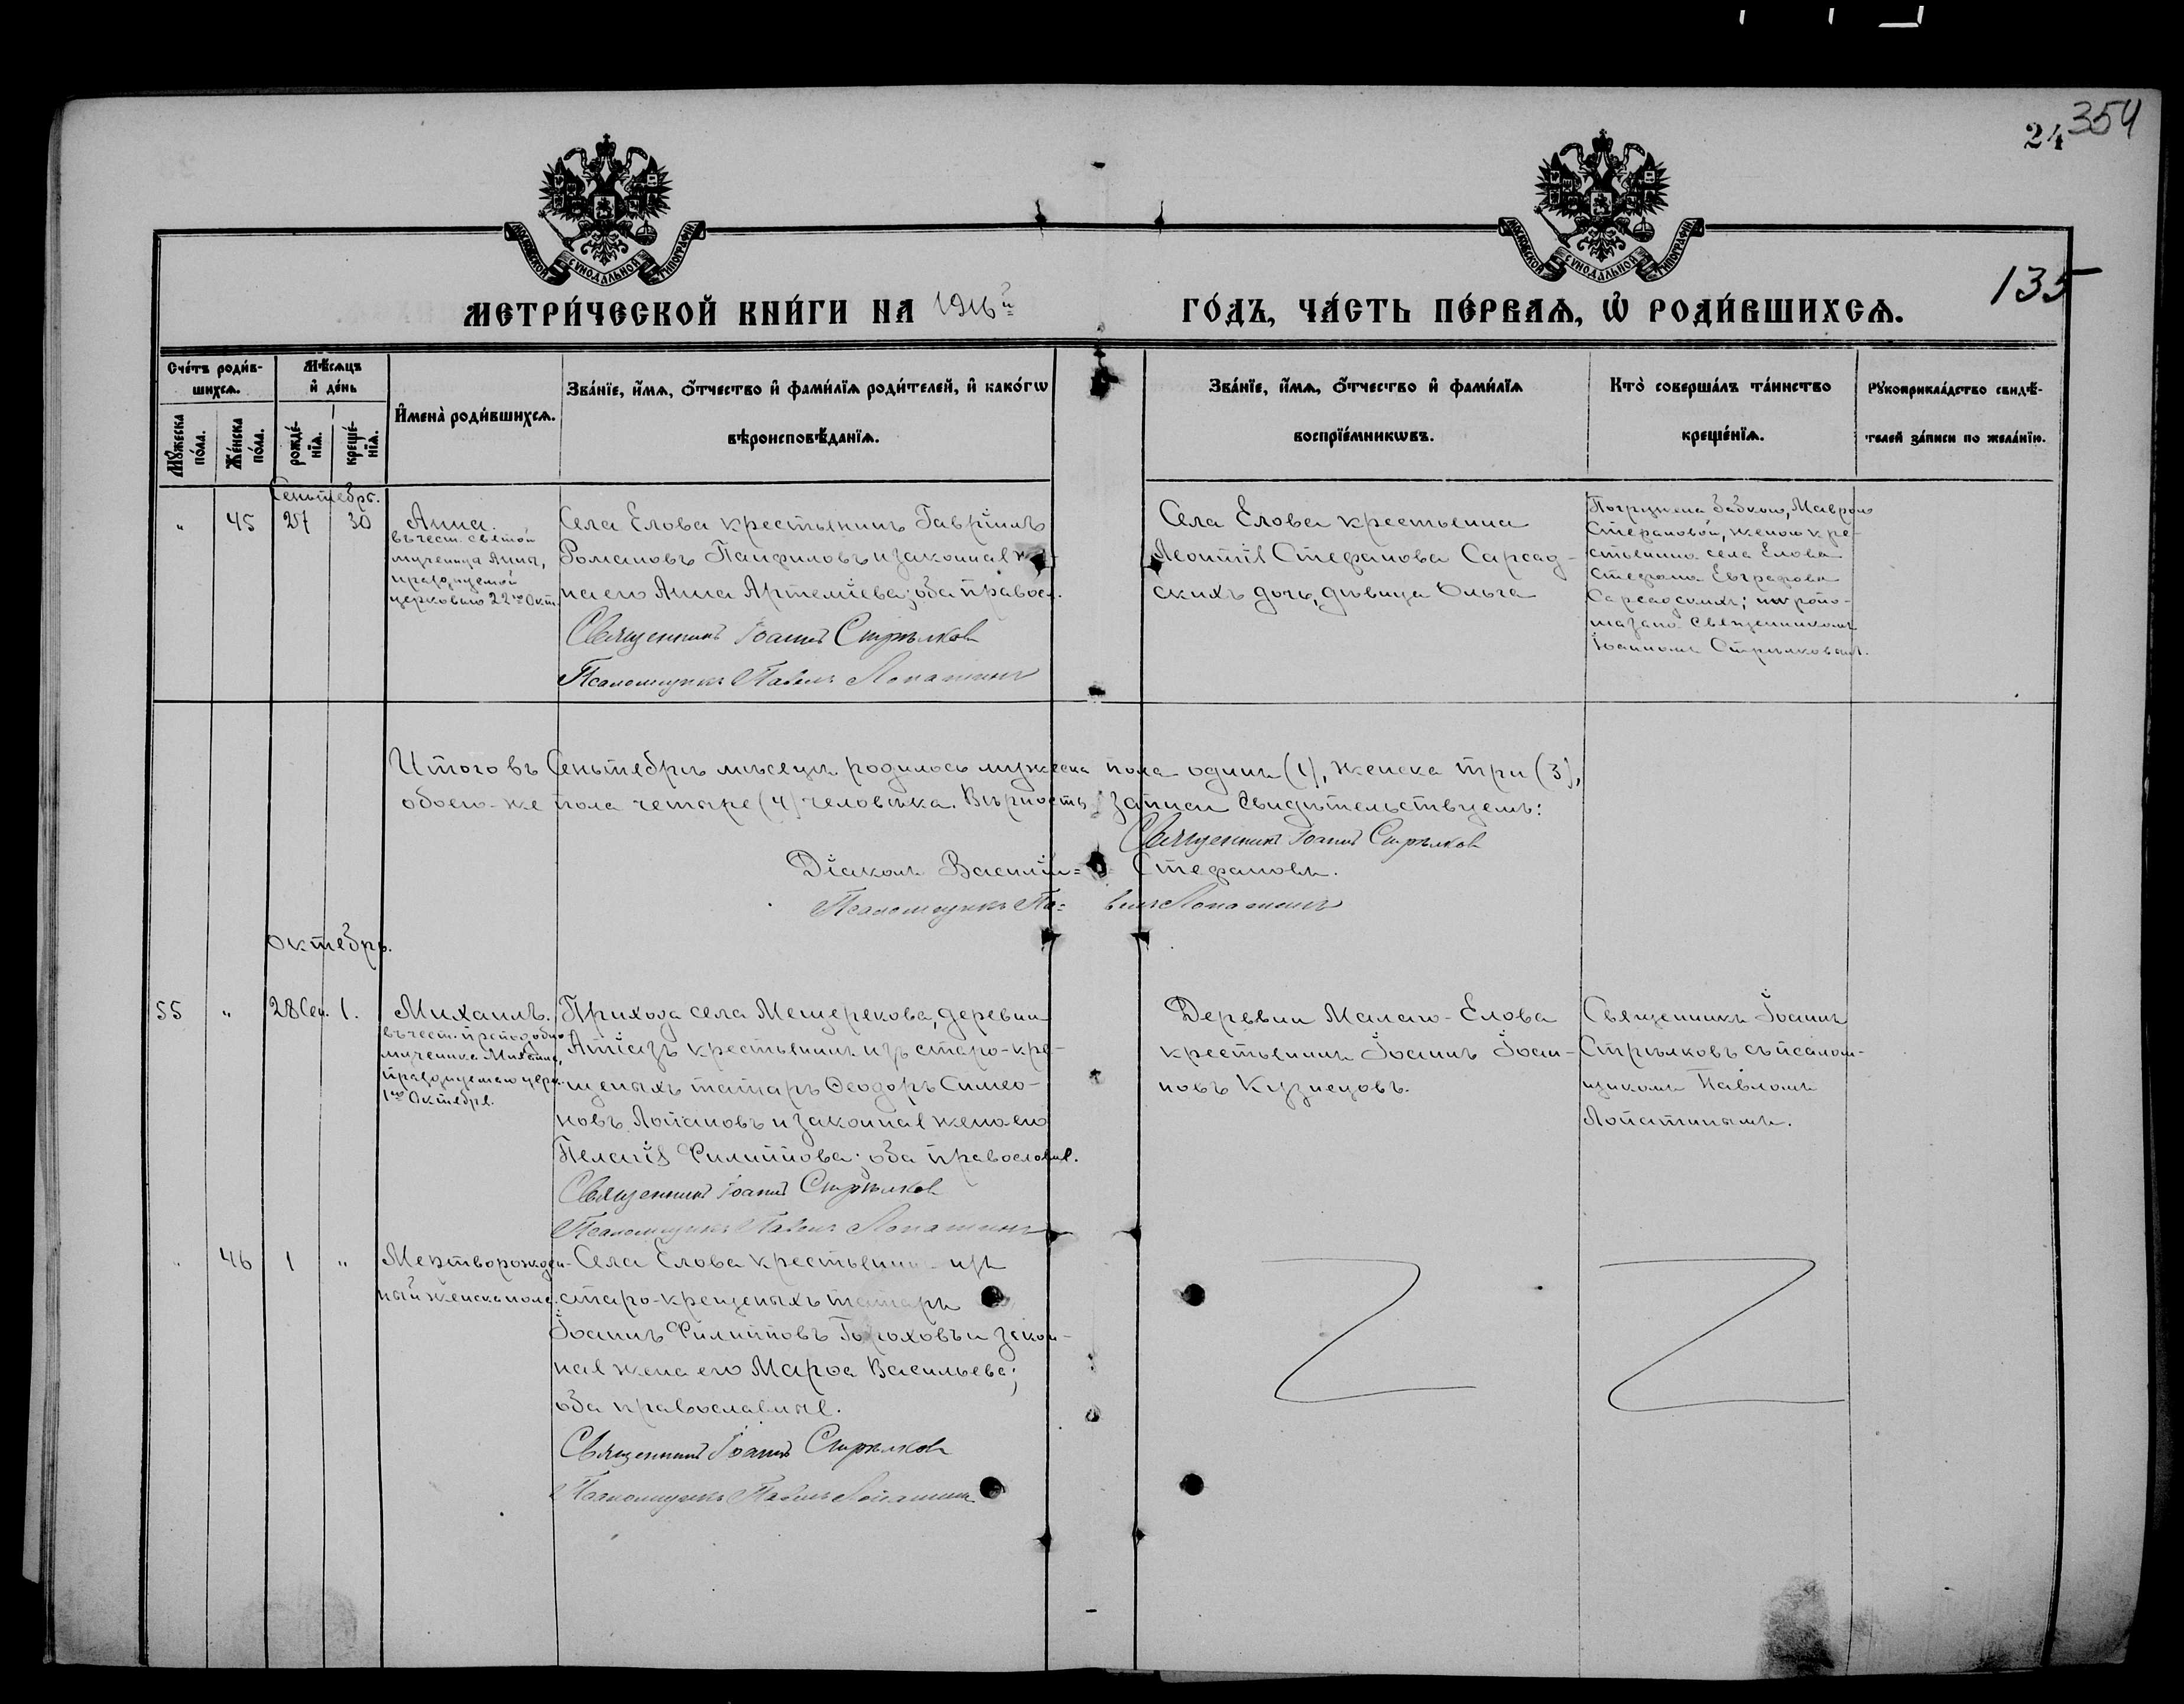 354
24
МОСКОВСКОЙ СѴНОДАЛЬНОЙ ТИПОГРАФІИ
МОСКОВСКОЙ СѴНОДАЛЬНОЙ ТИПОГРАФІИ
135
МЕТРИ́ЧЕСКОЙ КНИ́ГИ НА 1916й
ГО́ДЪ, ЧА́СТЬ ПЕ́РВАѦ, Ѡ҆ РОДИ́ВШИХСѦ.
Сче́тъ роди́в-
шихсѧ.
Мѣ́сяцъ
и҆ де́нь
Мꙋ́жеска
по́ла.
Же́нска
по́ла.
рожде́-
нїѧ.
креще́-
нїѧ.
И҆мена̀ роди́вшихсѧ.
Зва́нїе, и҆́мѧ, ѻ҆́тчество и҆ фами́лїѧ роди́телей, и҆ како́гѡ
вѣроисповѣ́данїѧ.
Зва́нїе, и҆́мѧ, ѻ҆́тчество и҆ фами́лїѧ
воспрїе́мникѡвъ.
Кто̀ соверша́лъ та́инство
креще́нїѧ.
Рꙋкоприкла́дство свидѣ́-
телей за́писи по жела́нїю.
Сентябрь.
" 45 27 30
Анна.
въ чест. святой
мученица Анны,
празднуемой
церковью 22го Окт.
Села Елова крестьянинъ Гавріилъ
Романовъ Панфиловъ и законная же-
на его Анна Артеміева; оба правосл.
Священникъ Іоаннъ Стрѣлковъ
Псаломщикъ Павелъ Лопатинъ
Села Елова крестьянина
Леонтія Стефанова Сарсад-
скихъ дочь, дѣвица Ольга
Погружена бабкою, Маврою
Стефановой, женою кре-
стьянина села Елова
Стефана Евграфова
Сарсадскихъ; мvропо-
мазано Священникомъ
Іоанномъ Стрѣлковымъ.
Итого въ Сентябрѣ мѣсяцѣ родилось мужеска пола одинъ (1), женска три (3),
обоего-же пола четыре (4) человѣка. Вѣрность записи свидѣтельствуемъ:
Священникъ Іоаннъ Стрѣлковъ
Діаконъ Василій= Стефановъ.
Псаломщикъ Па= велъ Лопатинъ
Октябрь.
55 " 28 Сен. 1.
Михаилъ.
въ чест. преподобно
мученика Михаила,
празднуемаго церк.
1го Октября.
Прихода села Мещерекова, деревни
Атіазъ крестьянинъ изъ старо-кре-
щеныхъ татаръ Ѳеодоръ Симео-
новъ Лопановъ и законная жена его
Пелагія Филиппова; оба православ.
Священникъ Іоаннъ Стрѣлковъ
Псаломщикъ Павелъ Лопатинъ
Деревни Малаго-Елова
крестьянинъ Іоаннъ Іоан-
новъ Кузнецовъ.
Священникъ Іоаннъ
Стрѣлковъ съ псалом-
щикомъ Павломъ
Лопатинымъ.
" 46 1 "
Мертворожден-
ный женска пола.
Села Елова крестьянинъ изъ
старо-крещеныхъ татаръ
Іоаннъ Филипповъ Гороховъ и закон-
ная жена его Марѳа Васильева;
оба православныя.
Священникъ Іоаннъ Стрѣлковъ
Псаломщикъ Павелъ Лопатинъ